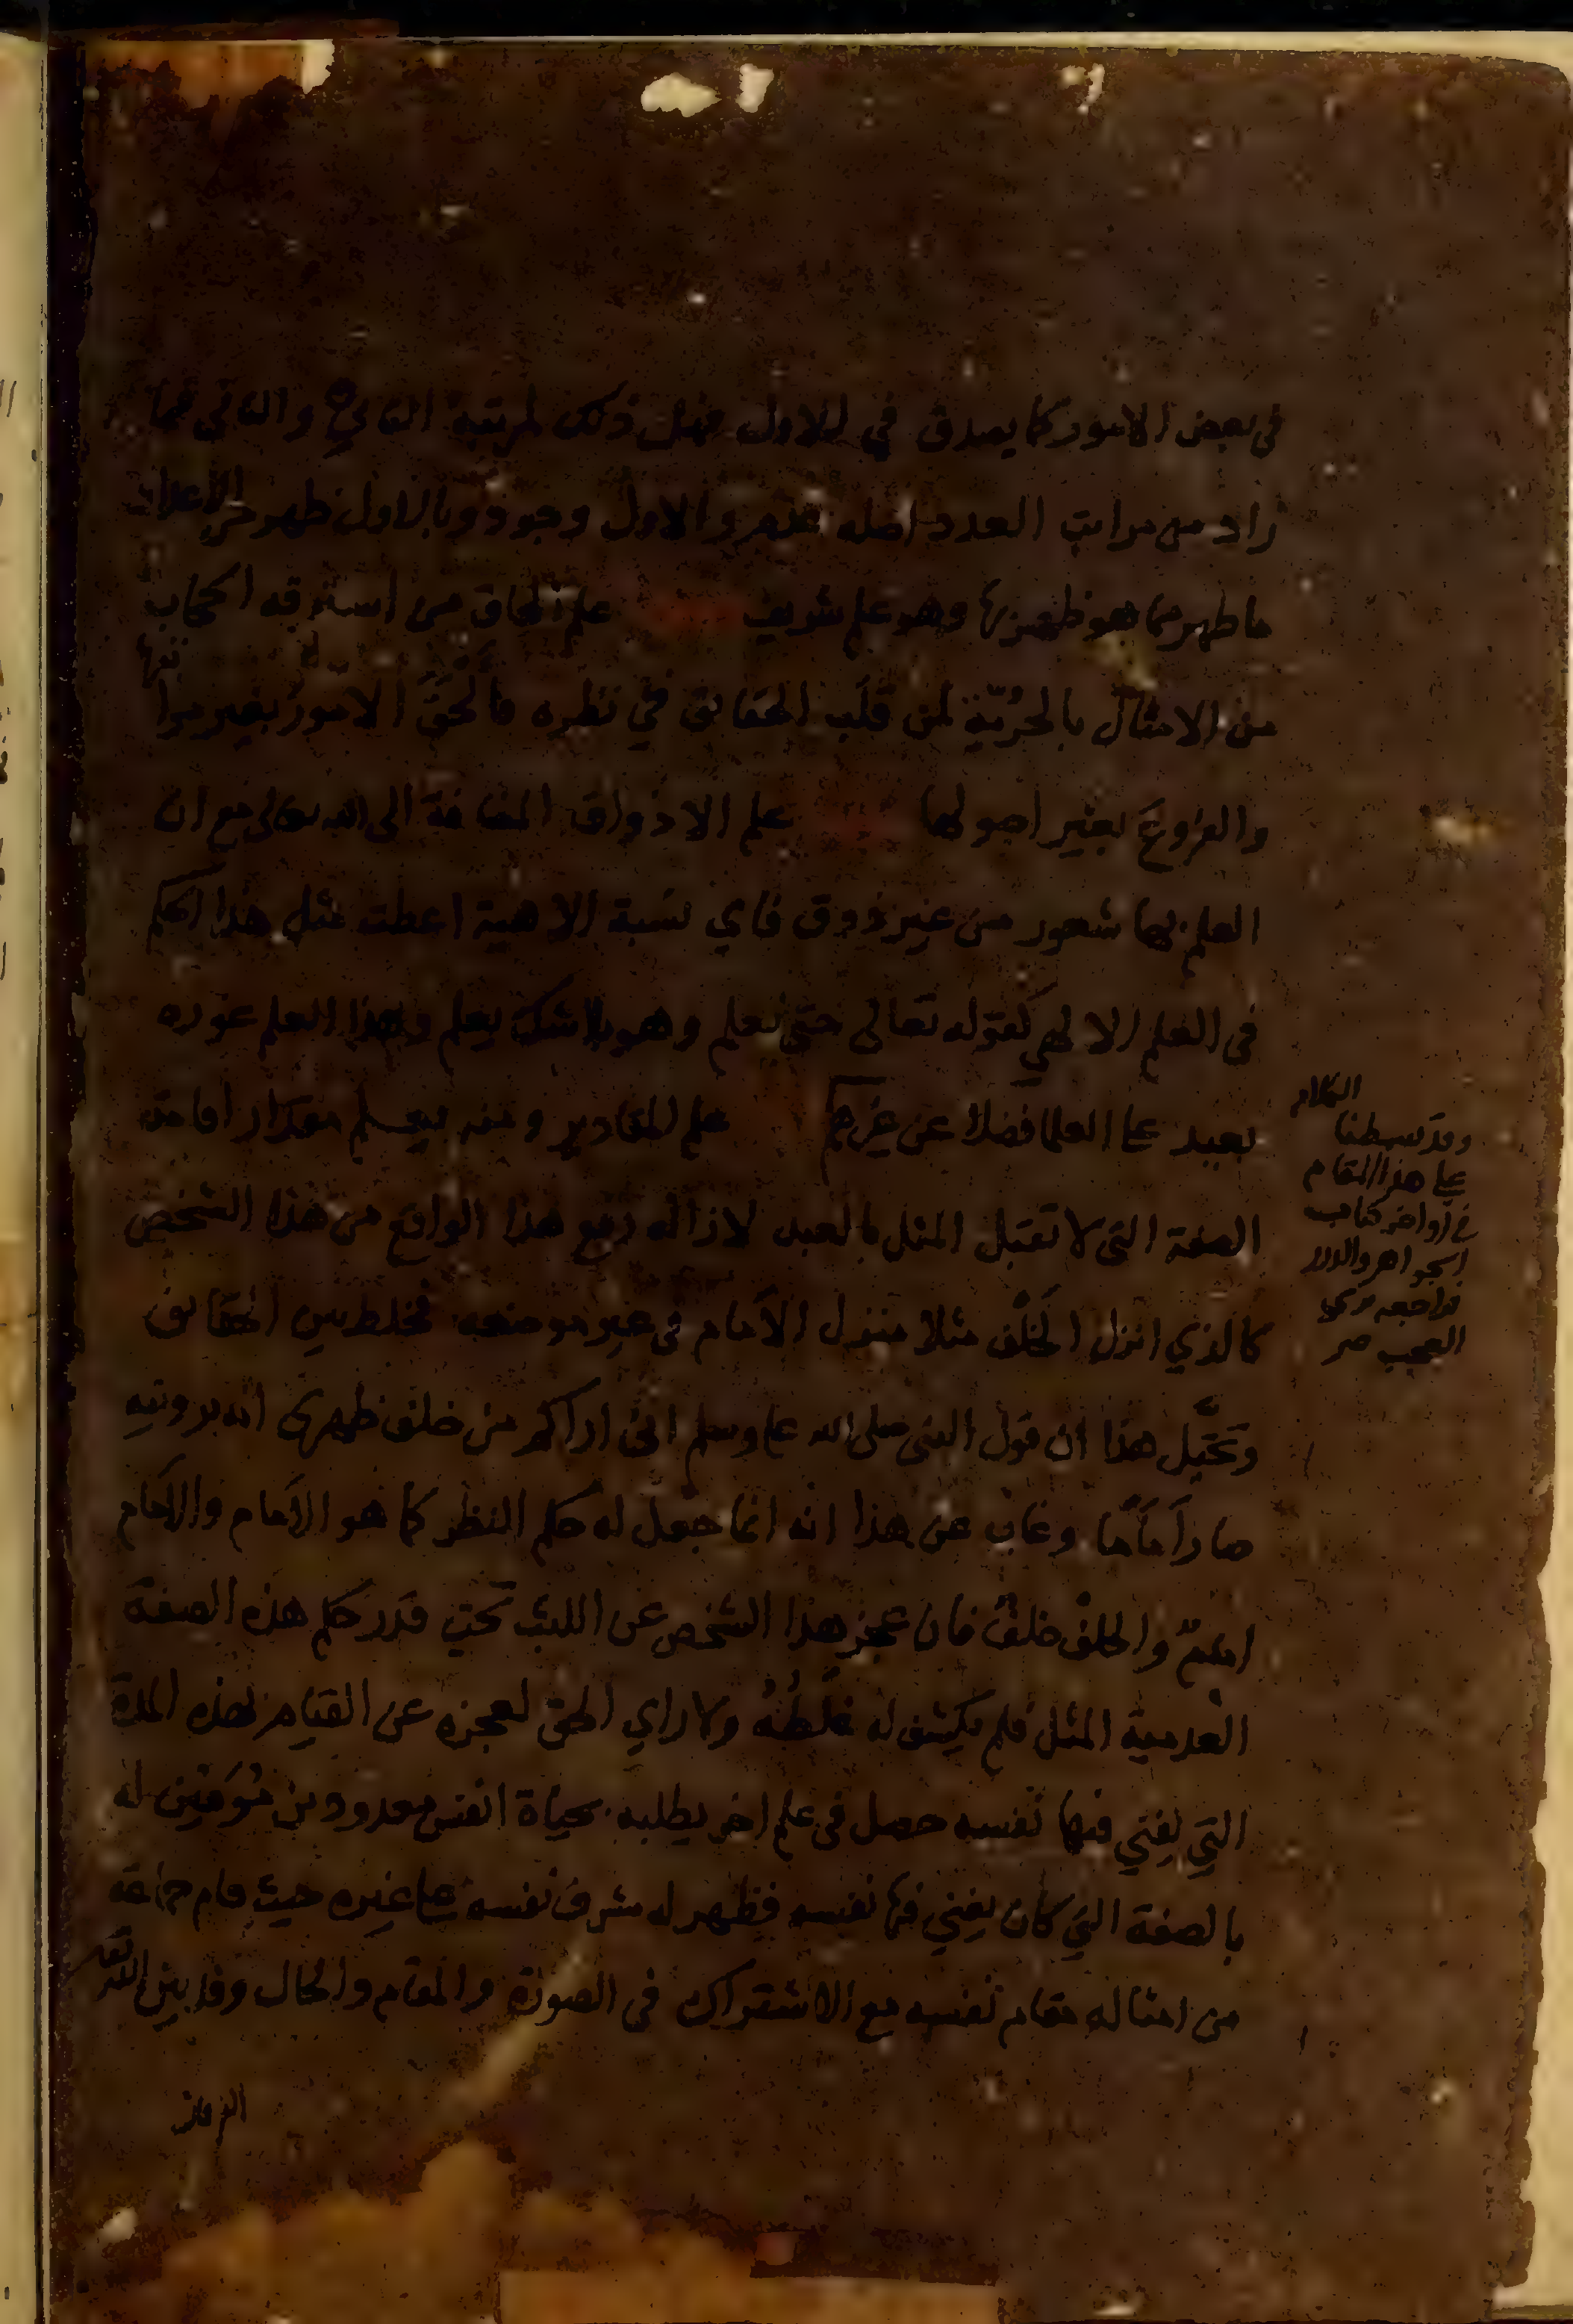 في بعض الامور كما يصدق في الاول مثل ذلك لمرتبة الثاني والثاني فما
زاد من مراتب العدد اصله عدم والاول وجود وبالاول ظهر الاعداد
ما ظهر مما هو ظهرنا وهو علم شريف علم الحاق من استرقه الحجاب
من الامثال بالحرّية لمن قلب الحقائق في نظره فألحق الامور بغير مراتبها
والفروع بغير اصولها علم الاذواق المضافة الى الله تعالى مع ان
العلم بها شعور من غير ذوق فاي نسبة الاهية اعطت مثل هذا الحكم
في العلم الالهي كقوله تعالى حتى نعلم وهو بلا شك يعلم وهذا العلم غوره
بعيد على العلما فضلا عن غيرهم علم المقادير ومنه يعلم مقدار اقامة
الصفة التي لا تقبل المثل بالعبد لازاله رفع هذا الواقع من هذا الشخص
كالذي انزل الخلف مثلا منزل الأمام في غير موضعه فخلط بين الحقائق
وتخيّل هذا ان قول النبي صلى الله عليه وسلم اني اراكم من خلف ظهري انه برؤيته
صار أماما وغاب عن هذا انه انما جعل له حكم النظر كما هو الأمام والأمام
امام والخلف خلف فان عجز هذا الشخص عن اللبث تحت قدر حكم هذه الصفة
العدمية المثل فلم يكشف له غلطه ولا راي الحق لعجزه عن القيام لهذه المدة
التي يفني فيها نفسه حصل في علم اخر يطلبه بحياة انفس معدودين مؤمنين له
بالصفة التي كان يفني فيها نفسه فظهر له شرف نفسه على غيره حيث قام جماعة
من امثاله مقام نفسه مع الاشتراك في الصورة والمقام والحال وقد بين الله تعالى
الفرقان
الكلام
وقد بسطنا
على هذا المقام
في اواخر كتاب
الجواهر والدرر
فراجعه ترى
العجب